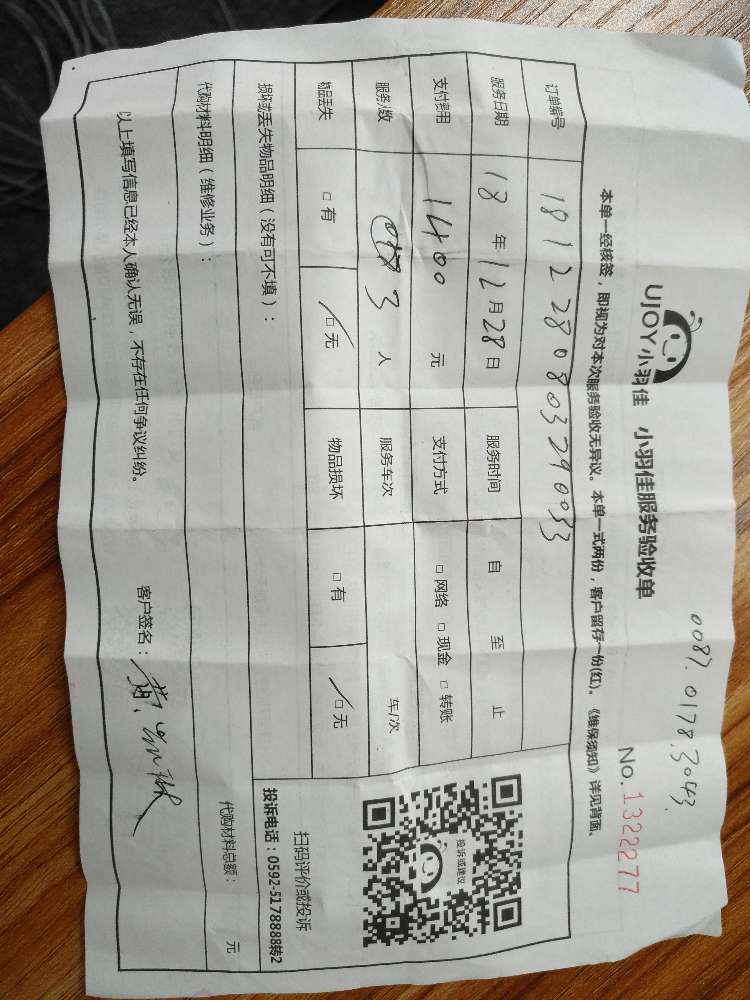 0087 0178.3043
UJOY小羽佳 小羽佳服务验收单
No.1322277
本单一经核签，即视为对本次服务验收无异议。本单一式两份，客户留存一份(红)。《维保须知》详见背面。
订单编号 1812280803290033
服务日期 18年12月28日 服务时间 自 至 止
支付费用 1400 元 支付方式 □网络 □现金 □转账
服务人数 3 人 服务车次 车/次
物品丢失 □有 □无 物品损坏 □有 □无
损坏或丢失物品明细（没有可不填）：
投诉或建议
扫码评价或投诉
投诉电话：0592-5178888转2
代购材料明细（维修业务）： 代购材料总额： 元
以上填写信息已经本人确认无误，不存在任何争议纠纷。 客户签名：